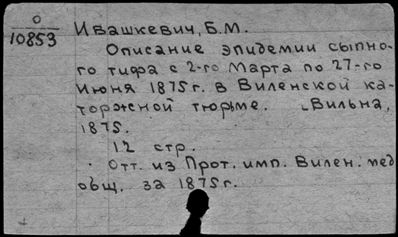 0
10853
Ивашкевич, Б.М.
Описание эпидемии сыпно-
го тифа с 2-го Марта по 27-го
Июня 1875 г. в Виленской ка-
торжной тюрьме. Вильна,
1875.
12 стр.
Отт. из Прот. имп. Вилен. мед
общ. за 1875 г.